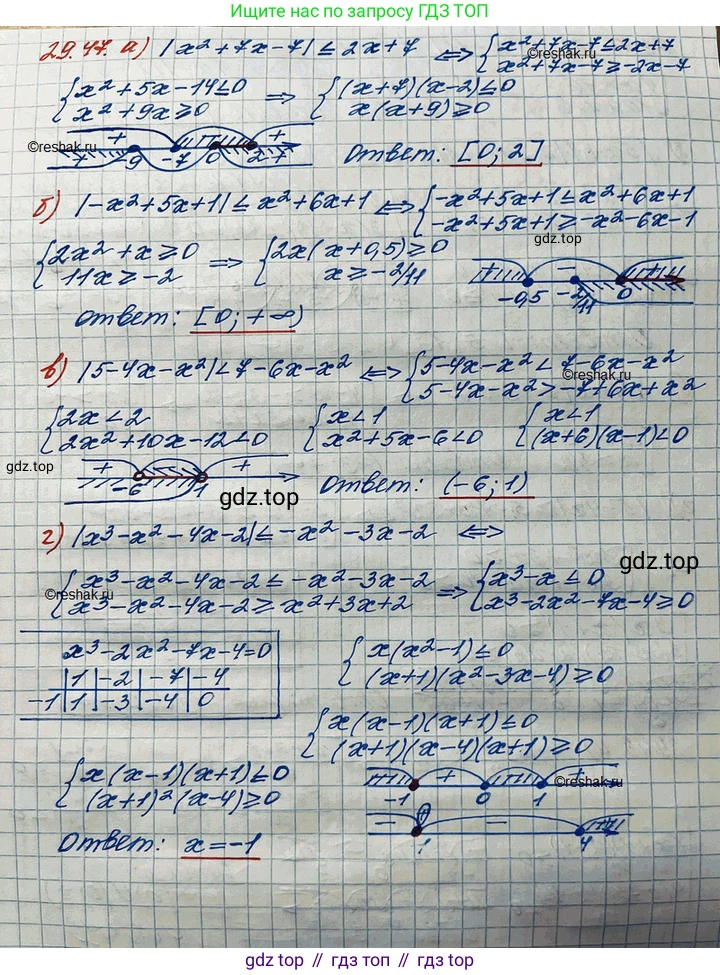 Ищите нас по запросу ГДЗ ТОП
29.47. а) |x²+7x-7| ≤ 2x+7 ⟺ { x²+7x-7 ≤ 2x+7
x²+7x-7 ≥ -2x-7
{ x²+5x-14 ≤ 0 ⇒ { (x+7)(x-2) ≤ 0
x²+9x ≥ 0 x(x+9) ≥ 0
©reshak.ru
+ + + -9 -7 0 2
Ответ: [0; 2]
б) |-x²+5x+1| ≤ x²+6x+1 ⟺ { -x²+5x+1 ≤ x²+6x+1
-x²+5x+1 ≥ -x²-6x-1
gdz.top
{ 2x²+x ≥ 0 ⇒ { 2x(x+0,5) ≥ 0
11x ≥ -2 x ≥ -2/11
+ - + -0,5 -2/11 0
Ответ: [0; +∞)
в) |5-4x-x²| < 7-6x-x² ⟺ { 5-4x-x² < 7-6x-x²
5-4x-x² > -7+6x+x²
©reshak.ru
{ 2x < 2 { x < 1 { x < 1
2x²+10x-12 < 0 x²+5x-6 < 0 (x+6)(x-1) < 0
gdz.top
+ - + -6 1
Ответ: (-6; 1)
gdz.top
г) |x³-x²-4x-2| ≤ -x²-3x-2 ⟺
gdz.top
{ x³-x²-4x-2 ≤ -x²-3x-2 ⇒ { x³-x ≤ 0
x³-x²-4x-2 ≥ x²+3x+2 x³-2x²-7x-4 ≥ 0
©reshak.ru
x³-2x²-7x-4=0
| 1 | -2 | -7 | -4
-1 | 1 | -3 | -4 | 0
{ x(x²-1) ≤ 0
(x+1)(x²-3x-4) ≥ 0
{ x(x-1)(x+1) ≤ 0
(x+1)(x-4)(x+1) ≥ 0
{ x(x-1)(x+1) ≤ 0
(x+1)²(x-4) ≥ 0
+ -1 0 1
©reshak.ru
- - 4
Ответ: x=-1
gdz top // гдз топ // gdz top